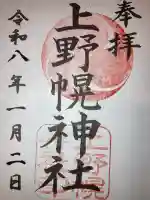 奉拝
上野幌神社
令和八年一月二日
上野幌